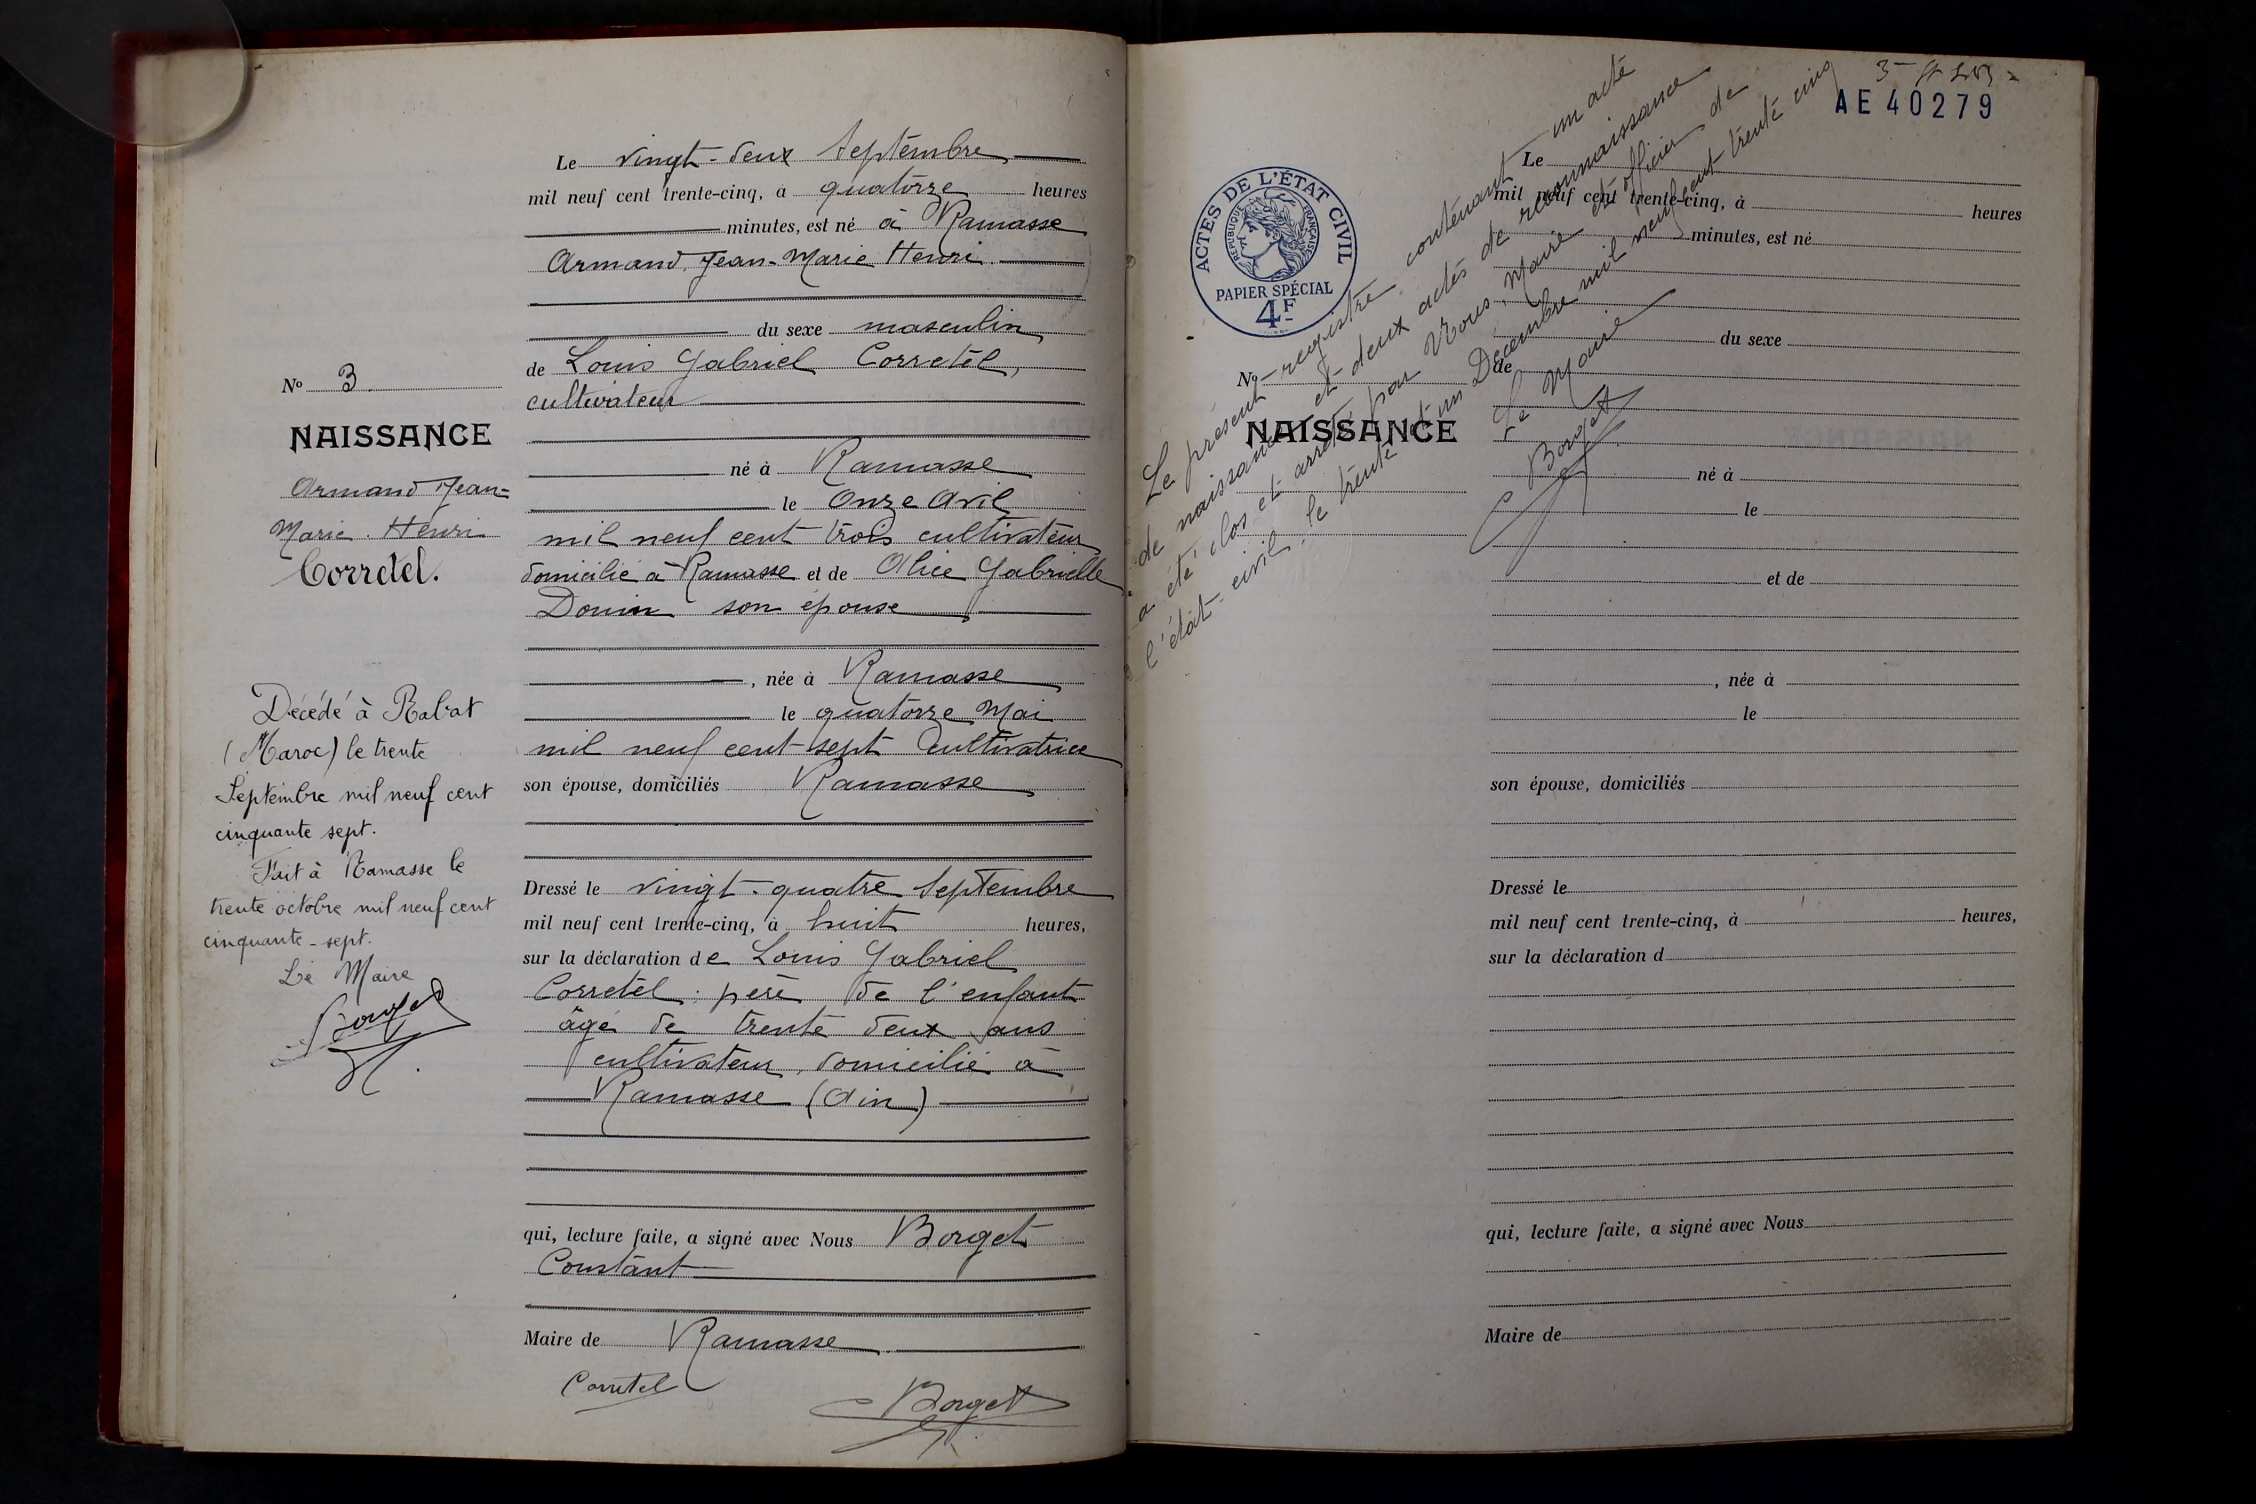 Le vingt-deux Septembre
mil neuf cent trente-cinq, à quatorze heures
minutes, est né à Ramasse
Armand Jean-Marie Henri
du sexe masculin
de Louis Gabriel Corretel,
cultivateur
né à Ramasse
le Onze Avril
mil neuf cent trois cultivateur
domicilié à Ramasse et de Alice Gabrielle
Donin son épouse
, née à Ramasse
le quatorze Mai
mil neuf cent sept Cultivatrice
son épouse, domiciliés Ramasse
Dressé le vingt-quatre Septembre
mil neuf cent trente-cinq, à huit heures,
sur la déclaration de Louis Gabriel
Corretel, père de l'enfant
âgé de trente deux ans
cultivateur, domicilié à
Ramasse (Ain)
qui, lecture faite, a signé avec Nous Borget
Constant
Maire de Ramasse
Corretel Borget
No 3
NAISSANCE
Armand Jean-
Marie Henri
Corretel.
Décédé à Rabat
(Maroc) le trente
Septembre mil neuf cent
cinquante sept.
Fait à Ramasse le
trente octobre mil neuf cent
cinquante-sept.
Le Maire
Borget
AE 40279
ACTES DE L'ÉTAT CIVIL
RÉPUBLIQUE FRANÇAISE
PAPIER SPÉCIAL
4F
Le présent registre contenant un acte
de naissance et deux actes de reconnaissance
a été clos et arrêté par Nous, Maire et officier de
l'état-civil, le trente et un Décembre mil neuf cent trente cinq
Le Maire
Borget
No
NAISSANCE
Le
mil neuf cent trente-cinq, à heures
minutes, est né
du sexe
de
né à
le
et de
, née à
le
son épouse, domiciliés
Dressé le
mil neuf cent trente-cinq, à heures,
sur la déclaration d
qui, lecture faite, a signé avec Nous
Maire de